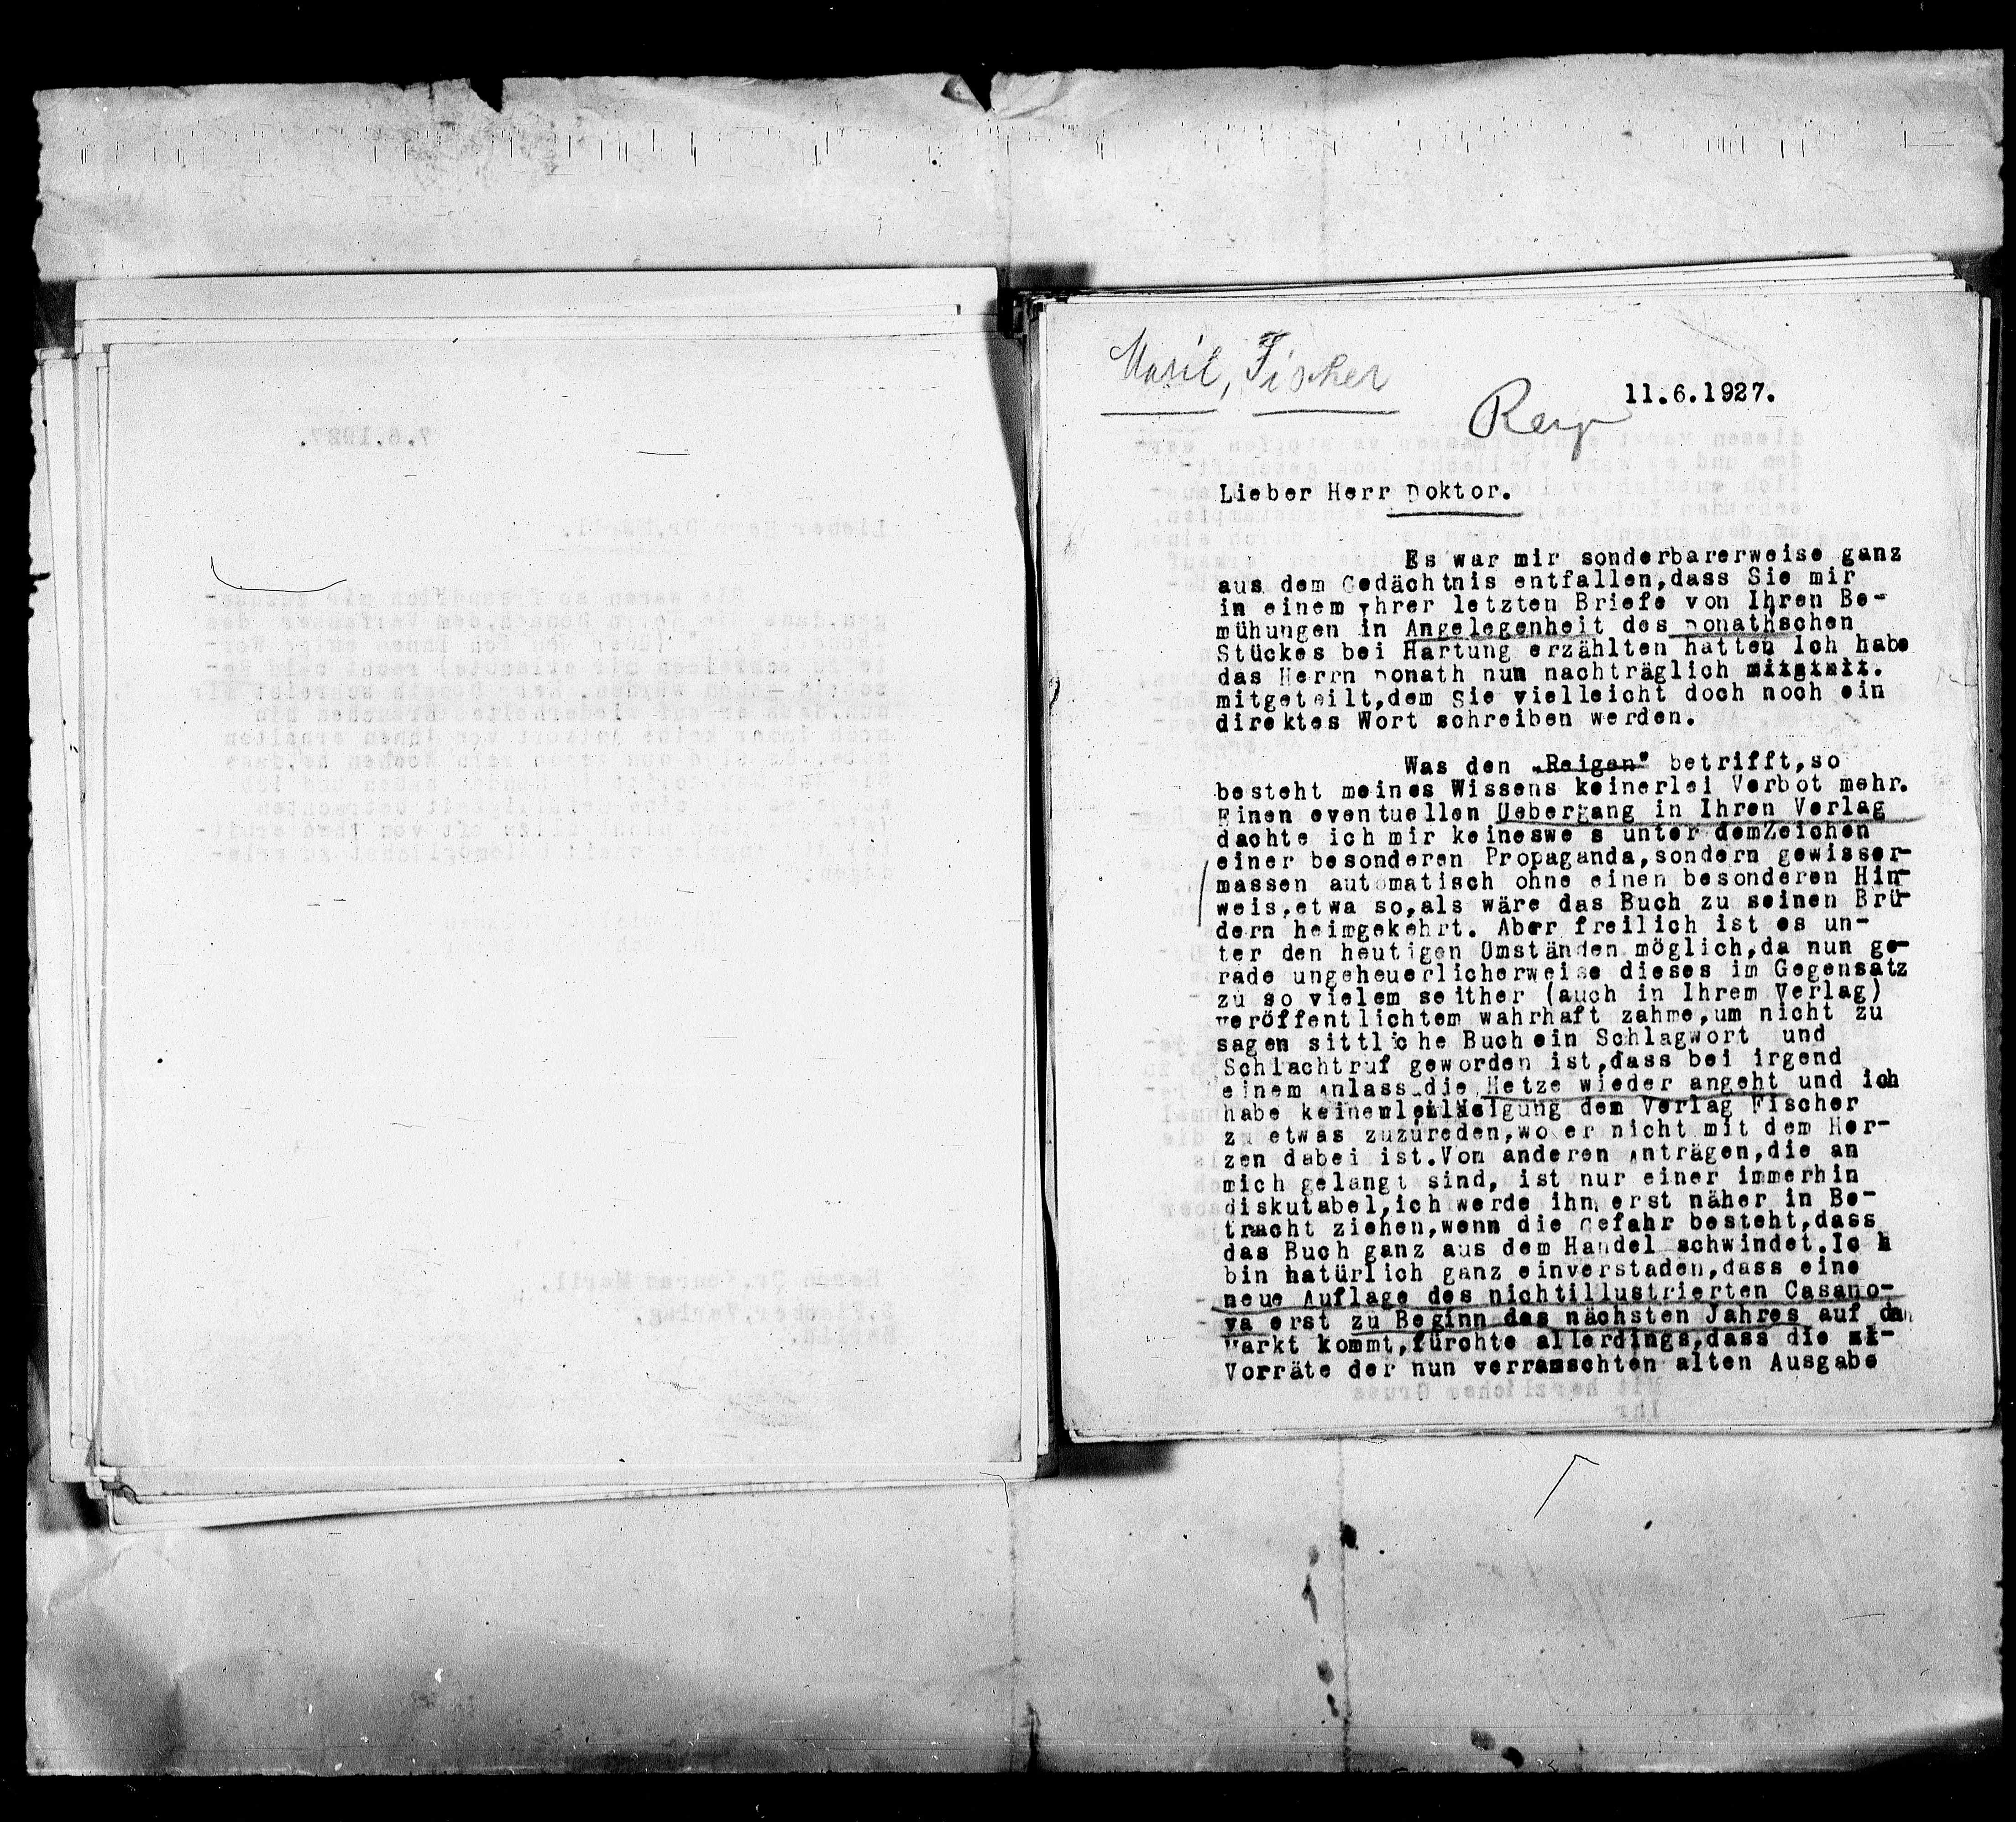 Maril, Fischer
11.6.1927.
Lieber Herr Doktor.
Es war mir sonderbarerweise ganz
aus dem Gedächtnis entfallen,dass Sie mir
in einem Ihrer letzten Briefe von Ihren Be-
mühungen in Angelegenheit des Donathschen
Stückes bei Hartung erzählten hatten Ich habe
das Herrn Donath nun nachträglich
mitgeteilt,dem Sie vielleicht doch noch ein
direktes Wort schreiben werden.
Was den „Reigen" betrifft,so
besteht meines Wissens keinerlei Verbot mehr.
Einen eventuellen Uebergang in Ihren Verlag
dachte ich mir keineswe s unter demZeichen
einer besonderen Propaganda,sondern gewisser-
massen automatisch ohne einen besonderen Hin-
weis,etwa so,als wäre das Buch zu seinen Brü-
dern heimgekehrt. Aber freilich ist es un-
ter den heutigen Umständen möglich,da nun ge-
rade ungeheuerlicherweise dieses im Gegensatz
zu so vielem seither (auch in Ihrem Verlag)
veröffentlichtem wahrhaft zahme,um nicht zu
sagen sittliche Buch ein Schlagwort und
Schlachtruf geworden ist,dass bei irgend
einem Anlass die Hetze wieder angeht und ich
habe keinerlei Neigung dem Verlag Fischer
zu etwas zuzureden,wo er nicht mit dem Her-
zen dabei ist.Von anderen Anträgen,die an
mich gelangt sind, ist nur einer immerhin
diskutabel,ich werde ihn erst näher in Be-
tracht ziehen,wenn die Gefahr besteht,dass
das Buch ganz aus dem Handel schwindet.Ic h
bin natürlich ganz einverstaden,dass eine
neue Auflage des nichtillustrierten Casano-
va erst zu Beginn des nächsten Jahres auf den
Markt kommt,fürchte allerdings,dass die
Vorräte der nun verramschten alten Ausgabe